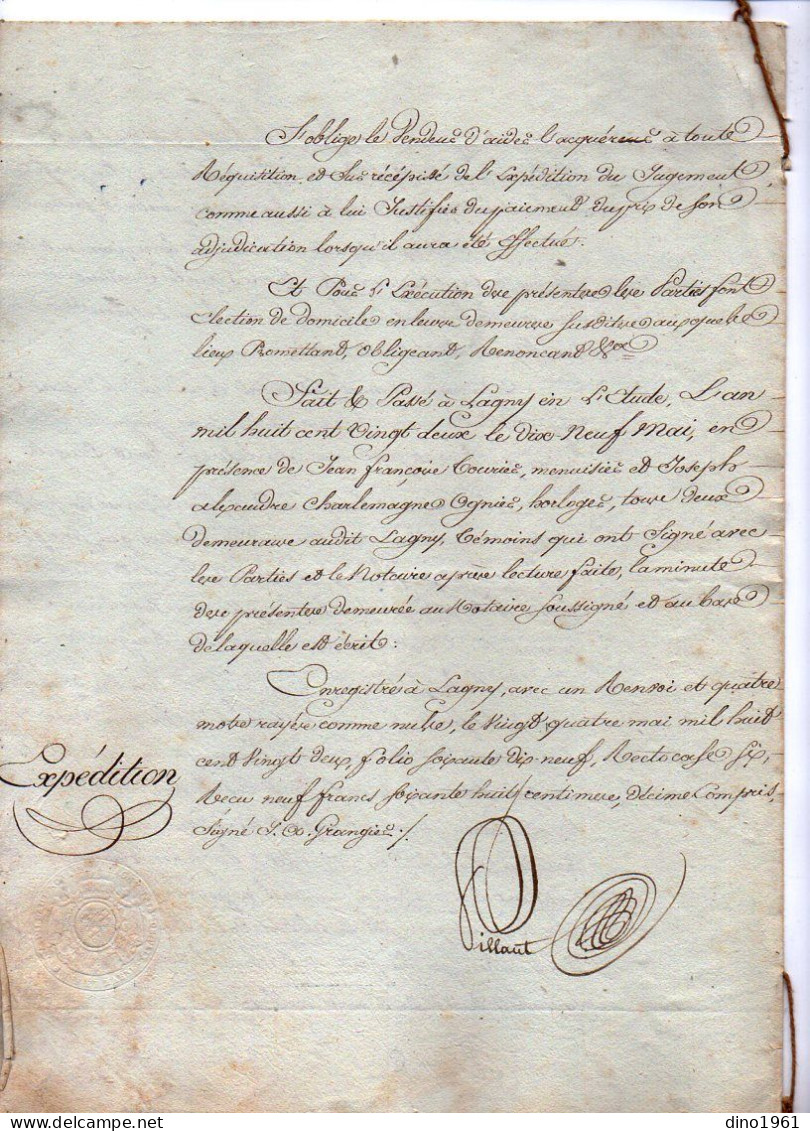 S'oblige le Vendeur d'aider l'acquéreur à toute
Réquisition et sur récépissé de l'Expédition du Jugement
comme aussi à lui Justifier du paiement du prix de son
adjudication lorsqu'il aura été Effectué.
Et Pour l'Exécution des présentes les Parties font
Election de domicile en leurs demeures susdites auxquels
lieux Promettant, Obligeant, Renoncant &a
Fait & Passé à Lagny en l'Etude, L'an
mil huit cent Vingt deux le Dix-Neuf Mai, en
présence de Jean françois Courier, menuisier et Joseph
alexandre Charlemagne Ognier, horloger, tous deux
demeurans audit Lagny, témoins qui ont Signé avec
les Parties et le Notaire après lecture faite, la minute
des présentes demeurée au Notaire soussigné et au bas
de laquelle est écrit :
Enregistré à Lagny, avec un Renvoi et quatre
mots rayés comme nuls, le Vingt quatre mai mil huit
cent Vingt deux, folio soixante dix neuf, Recto case six,
Expédition
Recu neuf francs soixante huit centimes, décime Compris,
Signé Grangier ./.
Pillaut
dino1961